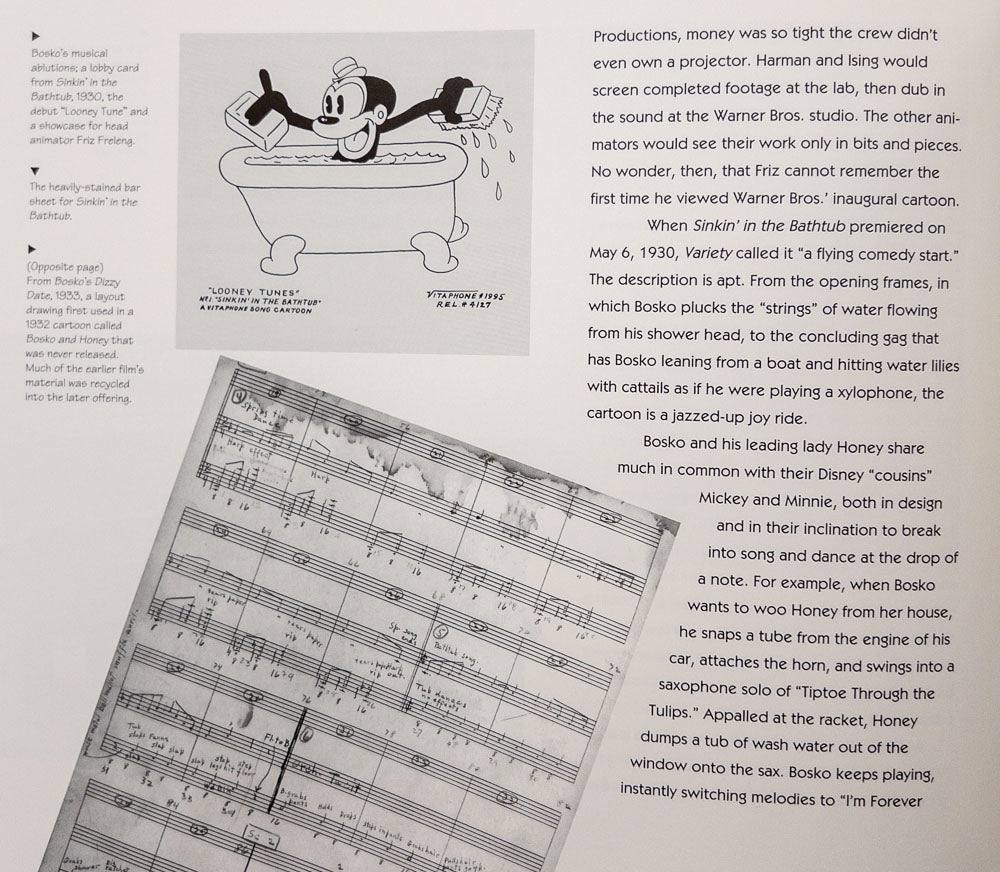 Bosko's musical
ablutions; a lobby card
from Sinkin' in the
Bathtub, 1930, the
debut "Looney Tune" and
a showcase for head
animator Friz Freleng.
The heavily-stained bar
sheet for Sinkin' in the
Bathtub.
(Opposite page)
From Bosko's Dizzy
Date, 1933, a layout
drawing first used in a
1932 cartoon called
Bosko and Honey that
was never released.
Much of the earlier film's
material was recycled
into the later offering.
"LOONEY TUNES"
No1. "SINKIN' IN THE BATHTUB"
A VITAPHONE SONG CARTOON
VITAPHONE #1995
REL. # 4127
Productions, money was so tight the crew didn't
even own a projector. Harman and Ising would
screen completed footage at the lab, then dub in
the sound at the Warner Bros. studio. The other ani-
mators would see their work only in bits and pieces.
No wonder, then, that Friz cannot remember the
first time he viewed Warner Bros.' inaugural cartoon.
When Sinkin' in the Bathtub premiered on
May 6, 1930, Variety called it "a flying comedy start."
The description is apt. From the opening frames, in
which Bosko plucks the "strings" of water flowing
from his shower head, to the concluding gag that
has Bosko leaning from a boat and hitting water lilies
with cattails as if he were playing a xylophone, the
cartoon is a jazzed-up joy ride.
Bosko and his leading lady Honey share
much in common with their Disney "cousins"
Mickey and Minnie, both in design
and in their inclination to break
into song and dance at the drop of
a note. For example, when Bosko
wants to woo Honey from her house,
he snaps a tube from the engine of his
car, attaches the horn, and swings into a
saxophone solo of "Tiptoe Through the
Tulips." Appalled at the racket, Honey
dumps a tub of wash water out of the
window onto the sax. Bosko keeps playing,
instantly switching melodies to "I'm Forever
Spring time
Dance
Harp effect
Harp
tears paper
rip
tears paper
rip
rip out
Bathtub song.
Tub dances
no effects
Tub
slap slap
B. grabs
pants
Holds